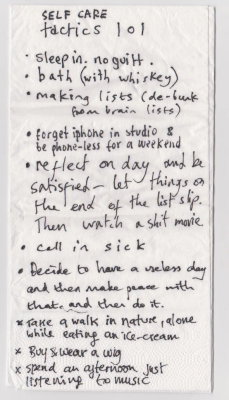 SELF CARE
tactics 101
• sleep in. no guilt.
• bath (with whiskey)
• making lists (de-bunk
from brain lists)
• forget iphone in studio &
be phone-less for a weekend
• reflect on day and be
satisfied – let things on
the end of the list slip.
Then watch a shit movie.
• call in sick
• Decide to have a useless day
and then make peace with
that. and then do it.
x Take a walk in nature, alone
while eating an ice-cream
x Buy & wear a wig
x spend an afternoon just
listening to music